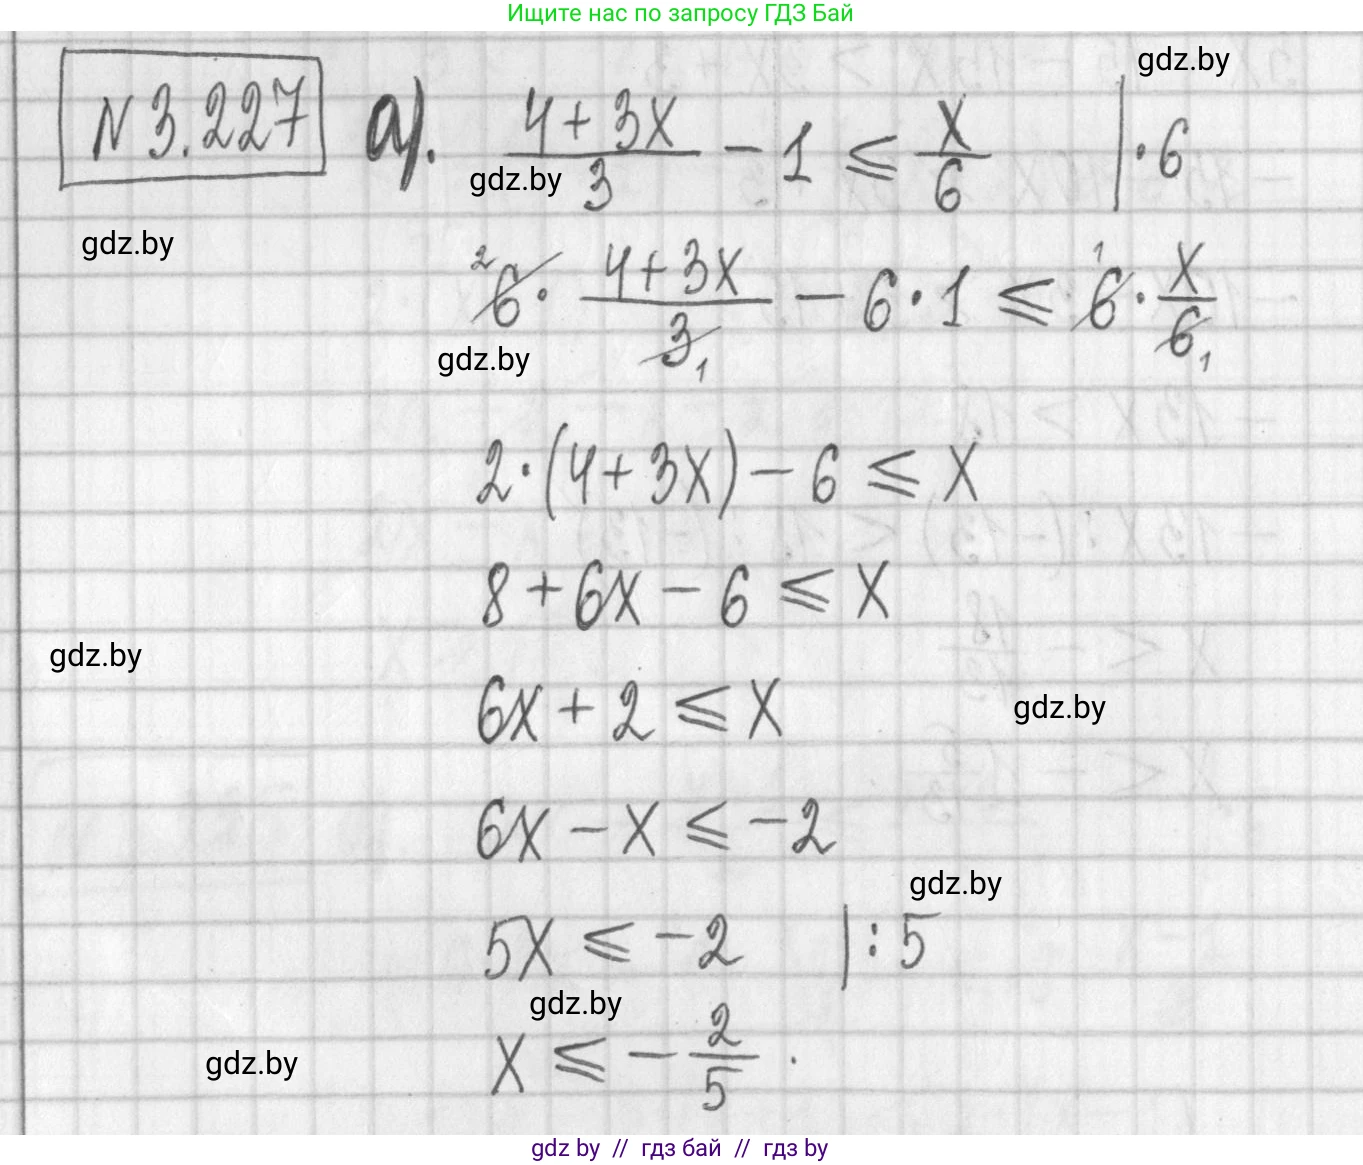 Ищите нас по запросу ГДЗ Бай
gdz.by
N 3.227 а). (4+3x)/3 − 1 ⩽ x/6 | · 6
gdz.by
gdz.by
2 6 · (4+3x)/3 1 − 6 · 1 ⩽ 1 6 · x/6 1
gdz.by
2·(4+3x) − 6 ⩽ x
8 + 6x − 6 ⩽ x
gdz.by
6x + 2 ⩽ x
gdz.by
6x − x ⩽ −2
gdz.by
5x ⩽ −2 | : 5
gdz.by
x ⩽ − 2/5 .
gdz.by
gdz by // гдз бай // гдз by